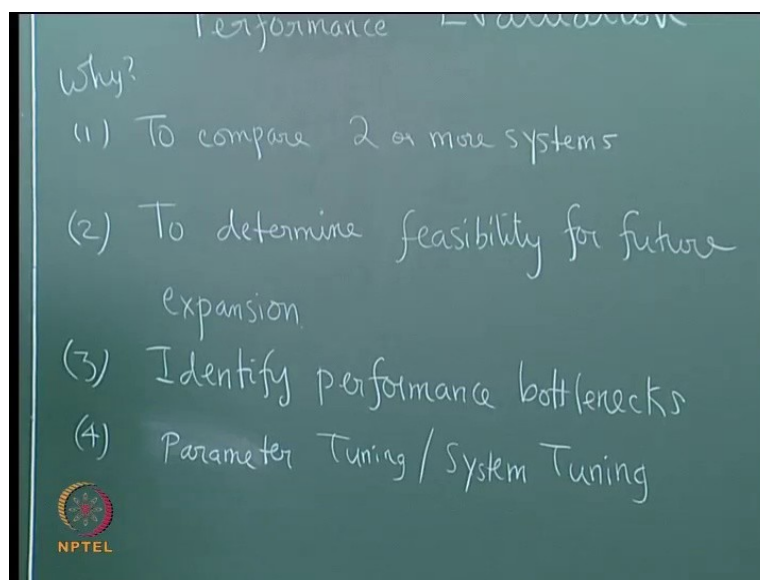 Performance Evaluation
Why?
(1) To compare 2 or more systems
(2) To determine feasibility for future
expansion
(3) Identify performance bottlenecks
(4) Parameter Tuning / System Tuning
NPTEL